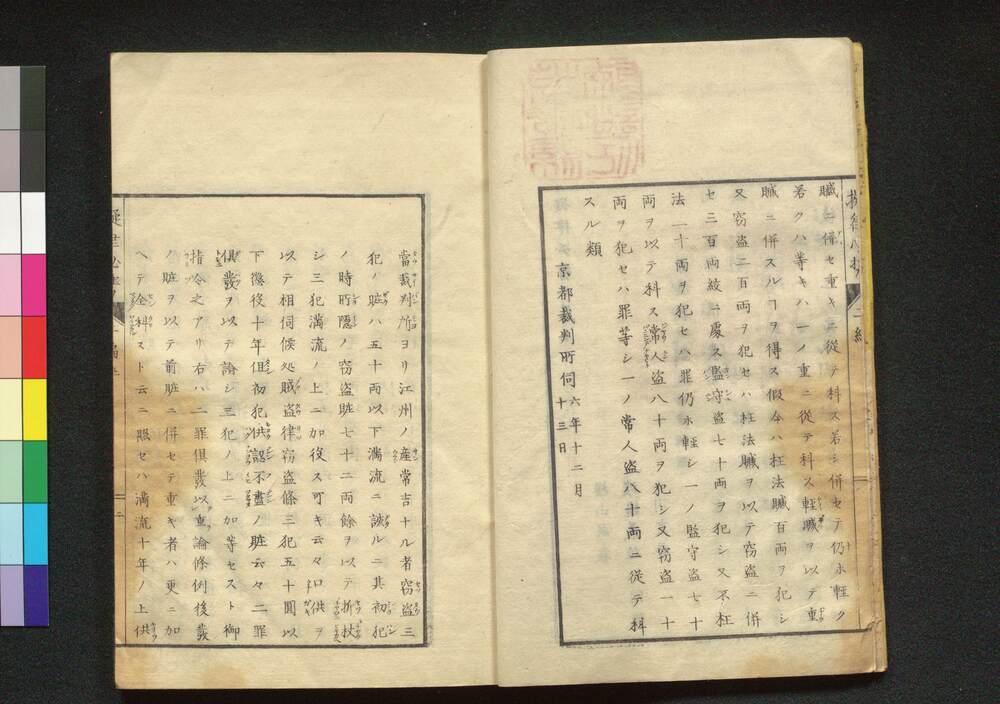 贓ニ併セ重キニ從テ科ス若シ併セテ仍ホ輕ク
若クハ等キハ一ノ重ニ從テ科ス輕贓ヲ以テ重
贓ニ併スルヿヲ得ス假令ハ枉法贓百両ヲ犯シ
又窃盗二百両ヲ犯セハ枉法贓ヲ以テ窃盗ニ併
セ三百両絞ニ處ス監守盗七十両ヲ犯シ又不枉
法一十両ヲ犯セハ罪仍ホ輕シ一ノ監守盗七十
両ヲ以テ科ス常人盗八十両ヲ犯シ又窃盗一十
両ヲ犯セハ罪等シ一ノ常人盗八十両ニ從テ科
スル類
京都裁判所伺六年十二月十三日
當裁判所ヨリ江州ノ産常吉ナル者窃盗三
犯ノ賍ハ五十両以下満流ニ誠ルニ其初犯
ノ時所隠ノ窃盗賍七十二両餘ヲ以テ折杖
シ三犯満流ノ上ニ加役ス可キ云々口供ヲ
以テ相伺候処賊盗律窃盗條三犯五十圓以
下懲役十年但初犯供認不盡ノ賍云々二罪
俱發ヲ以テ論シ三犯ノ上ニ加等セスト御
指令之アリ右ハ二罪俱發以重論條例後發
ノ賍ヲ以テ前賍ニ併セテ重キ者ハ更ニ加
ヘテ全科スト云ニ照セハ満流十年ノ上供